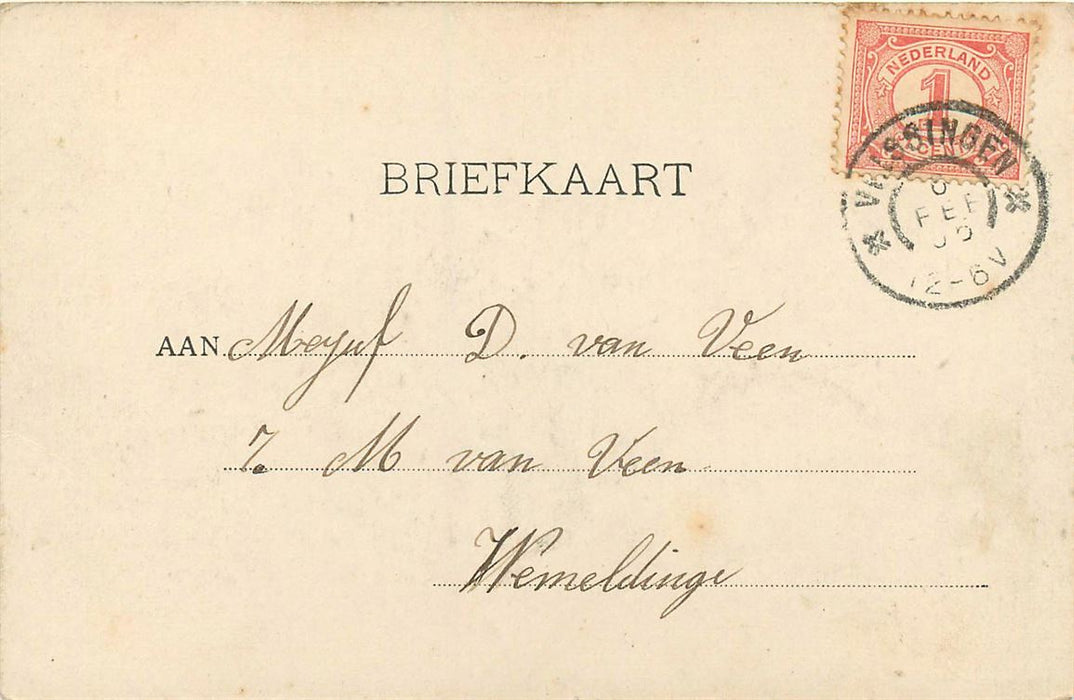 NEDERLAND
1
CENT
VLISSINGEN
6
FEB
12-6V
BRIEFKAART
AAN Mejuf D. van Veen
M van Veen
Wemeldinge